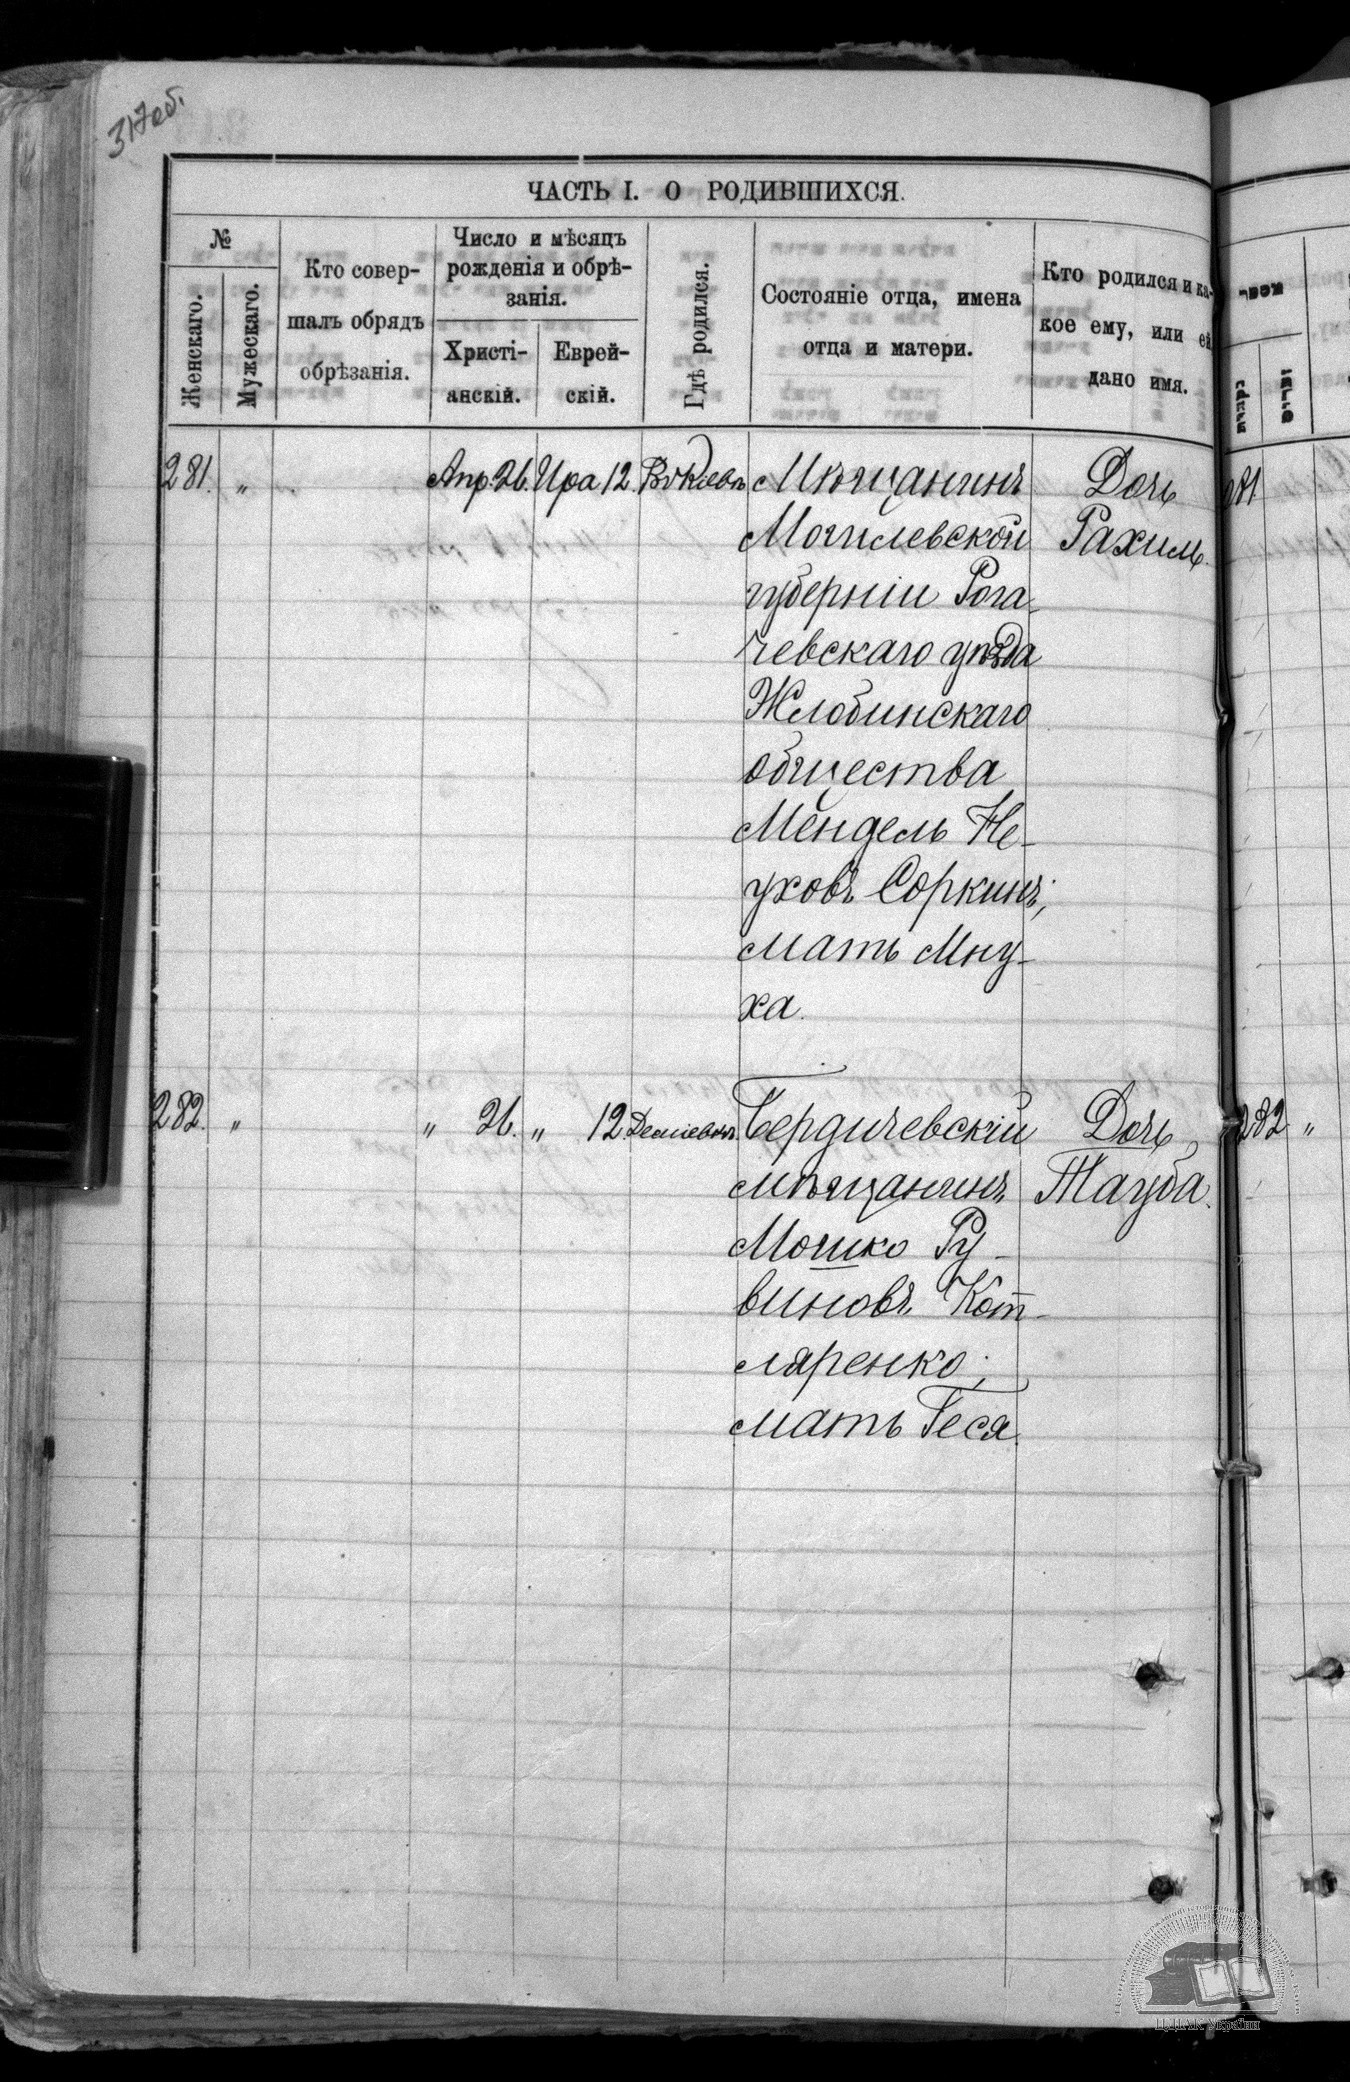 317об.
ЧАСТЬ I. О РОДИВШИХСЯ.
№
Женскаго.
Мужескаго.
Кто совер-
шалъ обрядъ
обрѣзанія.
Число и мѣсяцъ
рожденія и обрѣ-
занія.
Христі-
анскій.
Еврей-
скій.
Гдѣ родился.
Состояніе отца, имена
отца и матери.
Кто родился и ка-
кое ему, или ей
дано имя.
281. „ Апр. 26. Ира 12. Въ Кіевѣ Мѣщанинъ Дочь
Могилевской Рахиль.
губерніи Рога-
чевскаго уѣзда
Жлобинскаго
общества
Мендель Не-
уховъ Соркинъ;
мать Мну-
ха.
282. „ „ 26. „ 12. Деміевкѣ. Бердичевскій Дочь
мѣщанинъ Тауба.
Мошко Ру-
виновъ Кот-
ляренко;
мать Геся.
281
282 „
ЦДІАК України